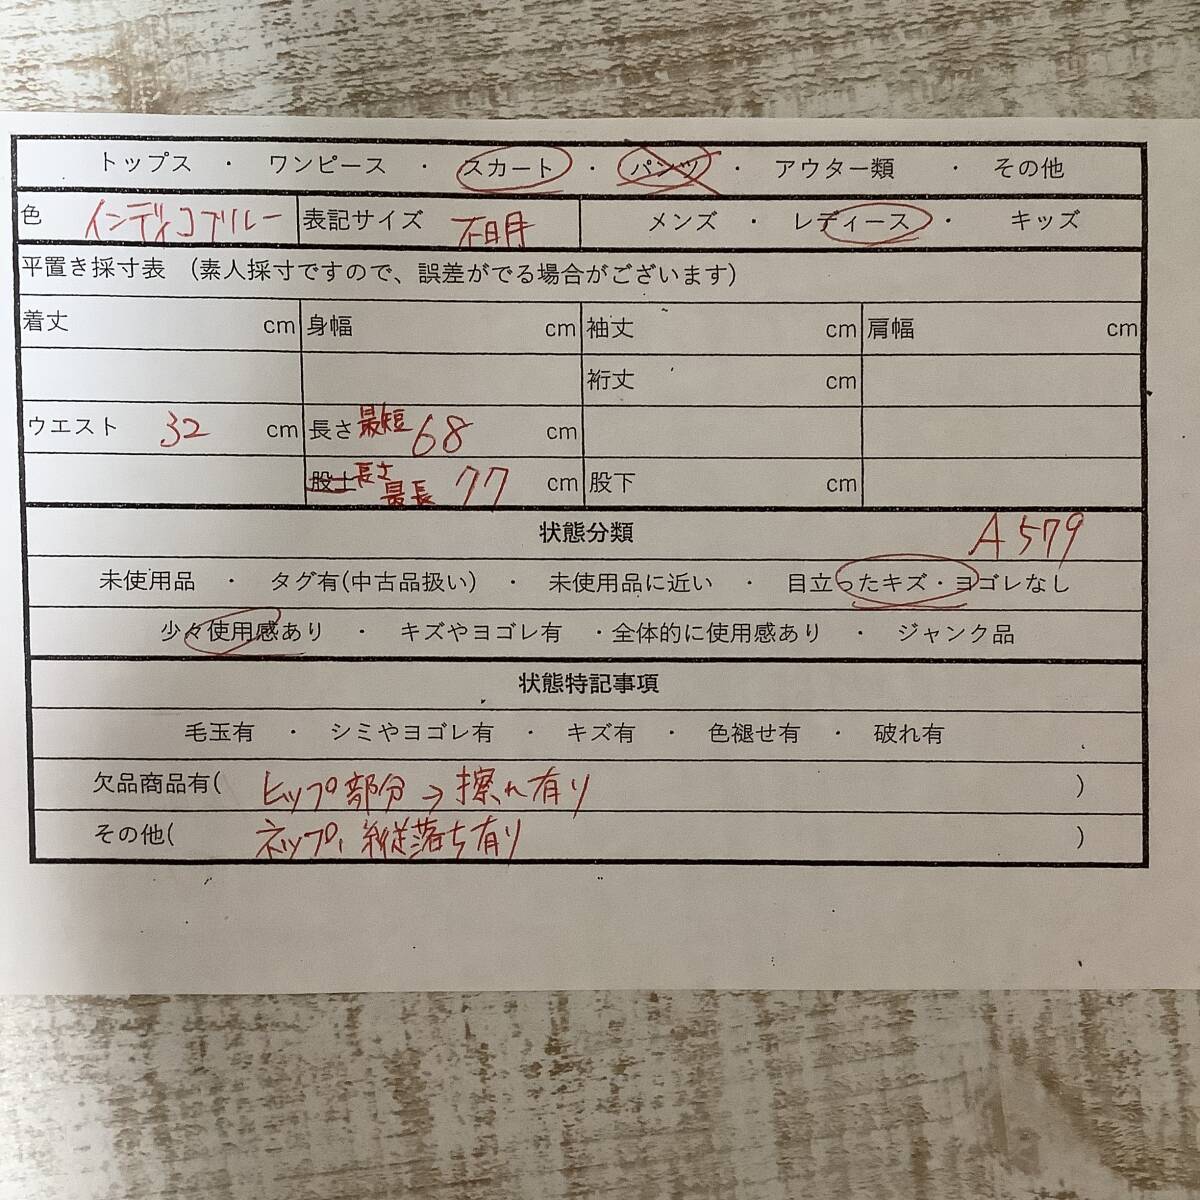 トップス ・ ワンピース ・ スカート ・ パンツ ・ アウター類 ・ その他
色 インディゴブルー 表記サイズ 不明 メンズ ・ レディース ・ キッズ
平置き採寸表 (素人採寸ですので、誤差がでる場合がございます)
着丈 cm 身幅 cm 袖丈 cm 肩幅 cm
裄丈 cm
ウエスト 32 cm 長さ 最短 68 cm
股上 長さ 最長 77 cm 股下 cm
状態分類 A579
未使用品 ・ タグ有(中古品扱い) ・ 未使用品に近い ・ 目立ったキズ・ヨゴレなし
少々使用感あり ・ キズやヨゴレ有 ・全体的に使用感あり ・ ジャンク品
状態特記事項
毛玉有 ・ シミやヨゴレ有 ・ キズ有 ・ 色褪せ有 ・ 破れ有
欠品商品有( ヒップ部分→擦れ有り )
その他( ネップ、縦落ち有り )